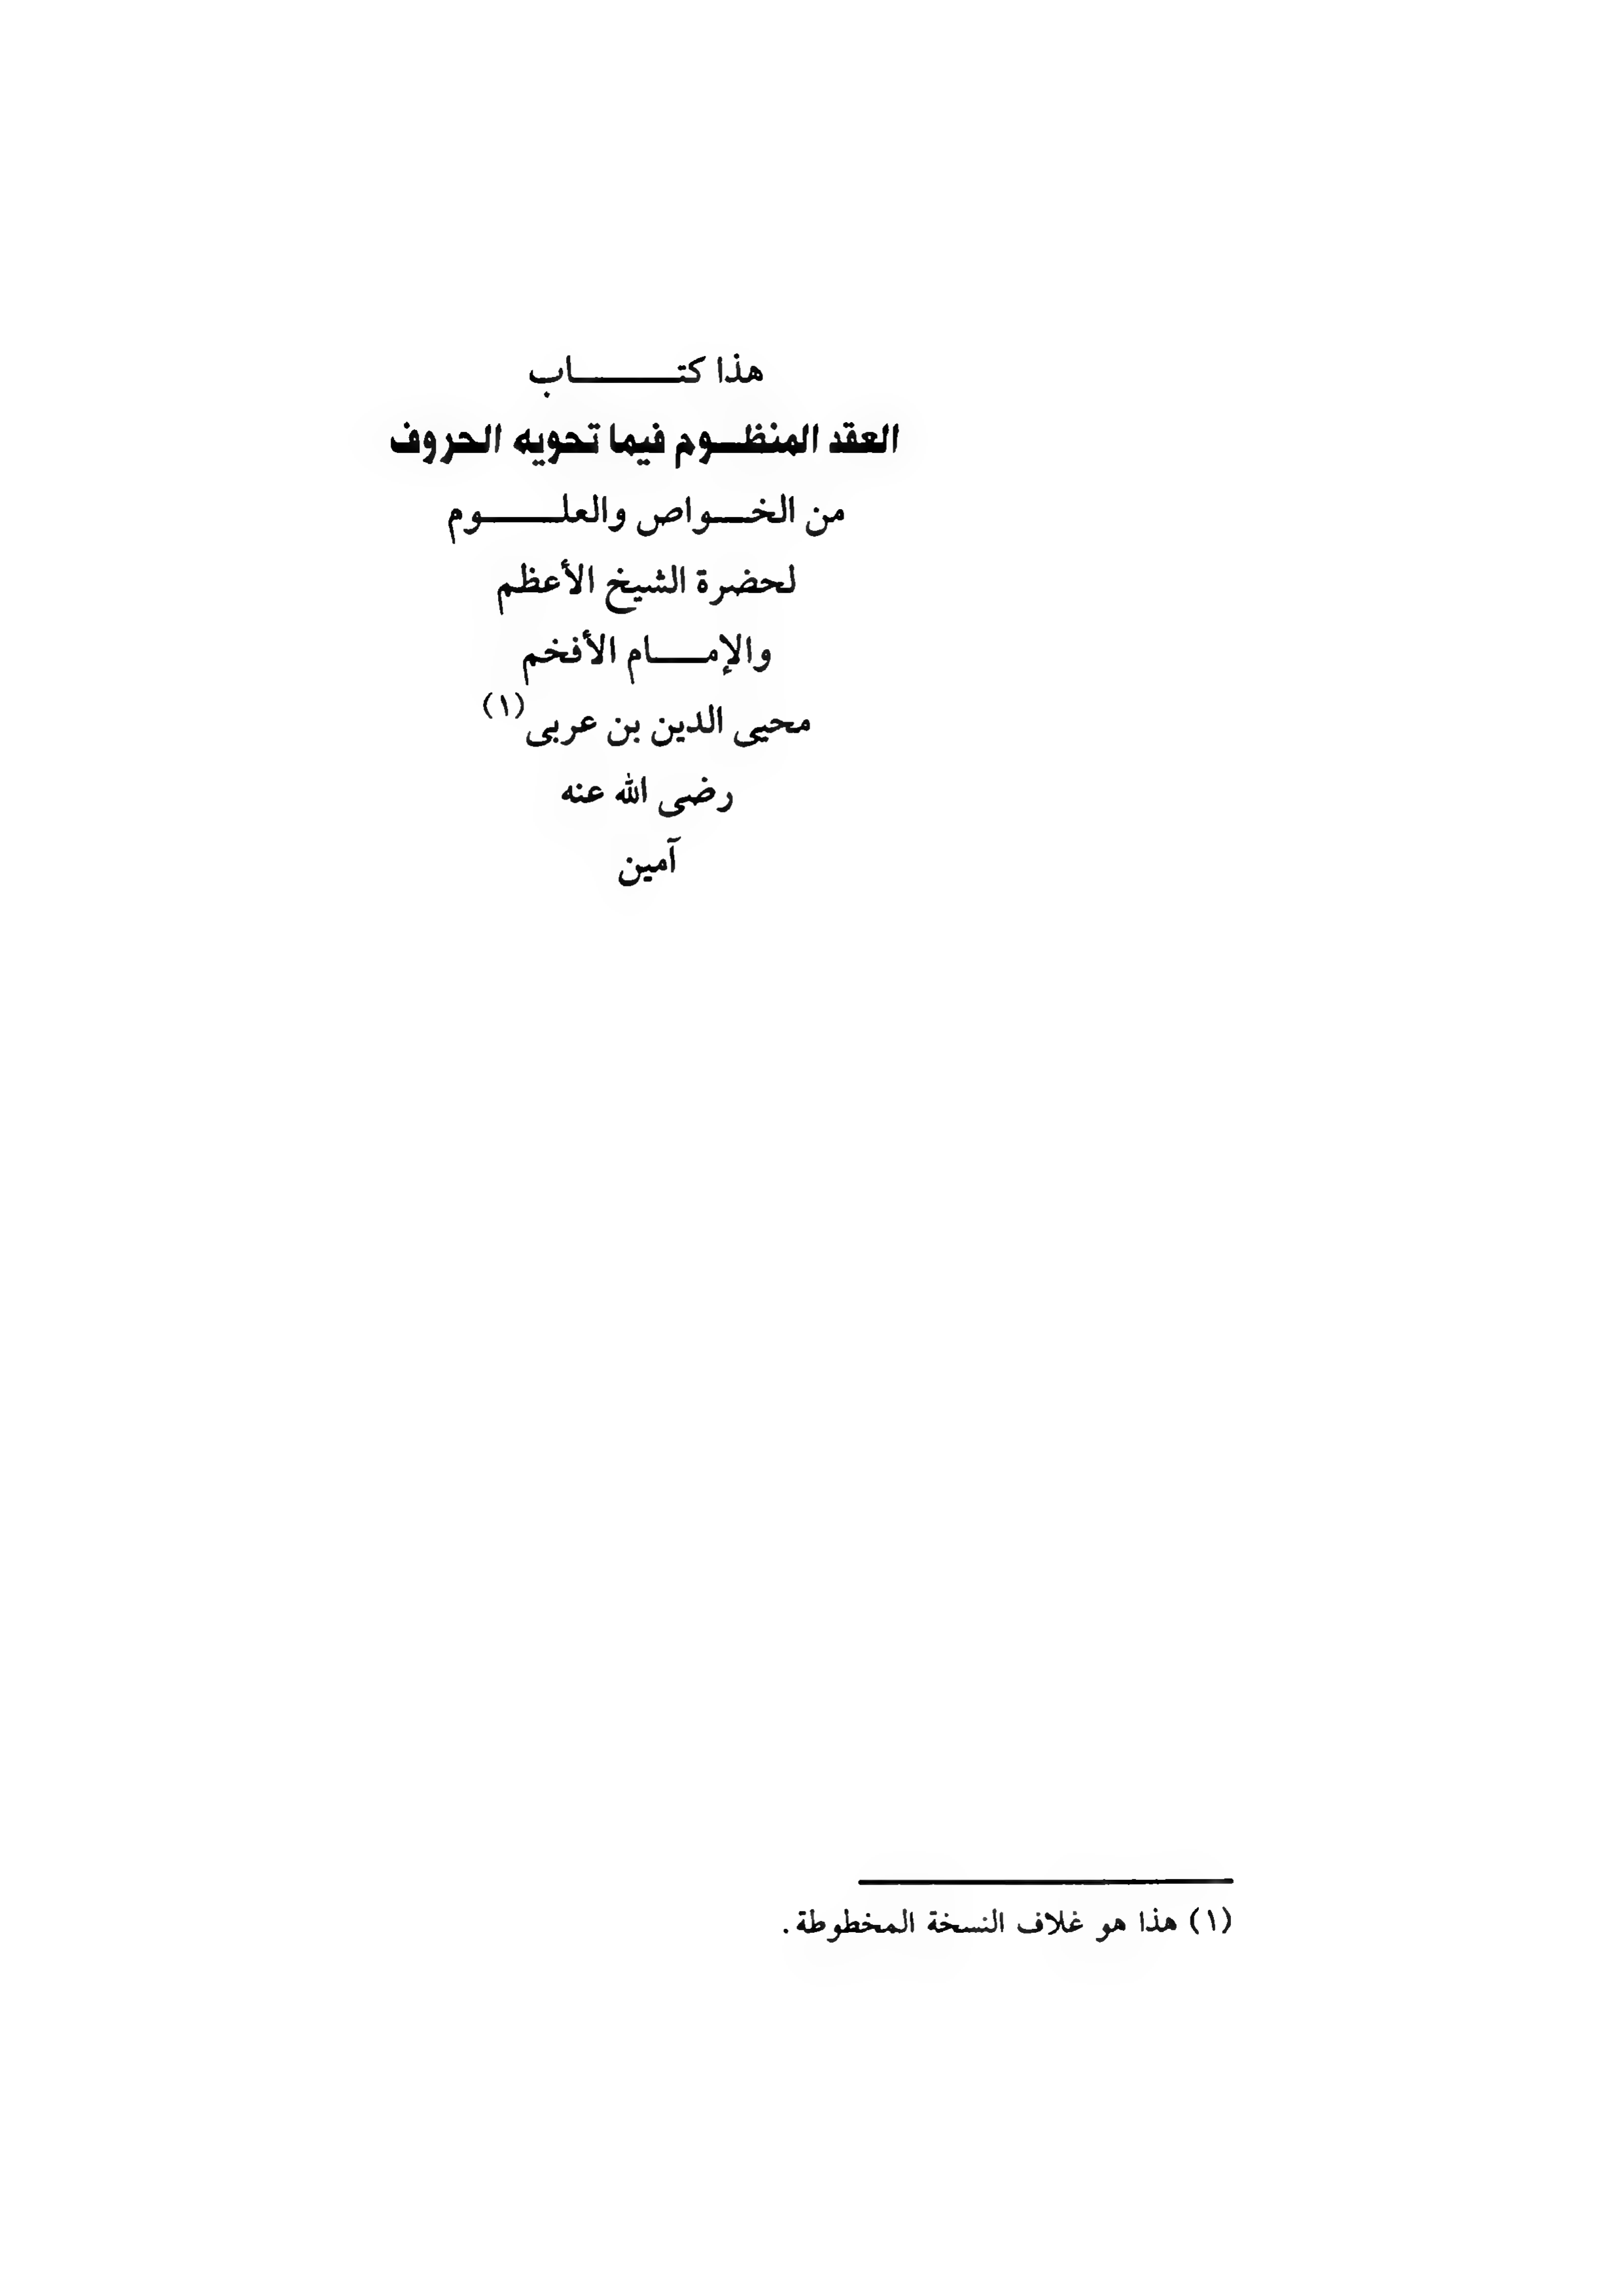 هذا كتـــــــاب
العقد المنظــوم فيما تحويه الحروف
من الخــواص والعلـــــوم
لحضرة الشيخ الأعظم
والإمـــــام الأفخم
محيى الدين بن عربى(١)
رضى الله عنه
آمين
(١) هذا هو غلاف النسخة المخطوطة.